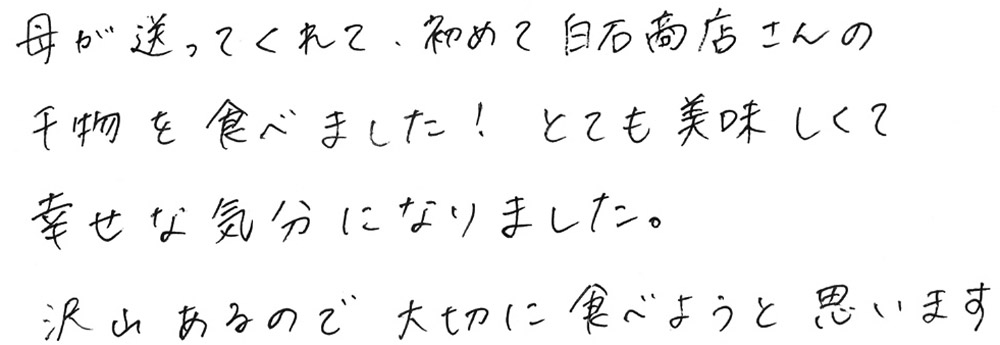 母が送ってくれて、初めて白石商店さんの
干物を食べました！とても美味しくて
幸せな気分になりました。
沢山あるので大切に食べようと思います